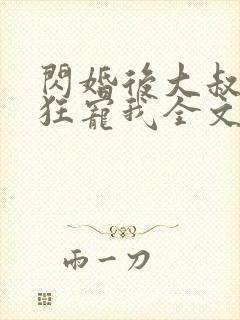 閃婚後大叔
狂寵我全文
雨一刀